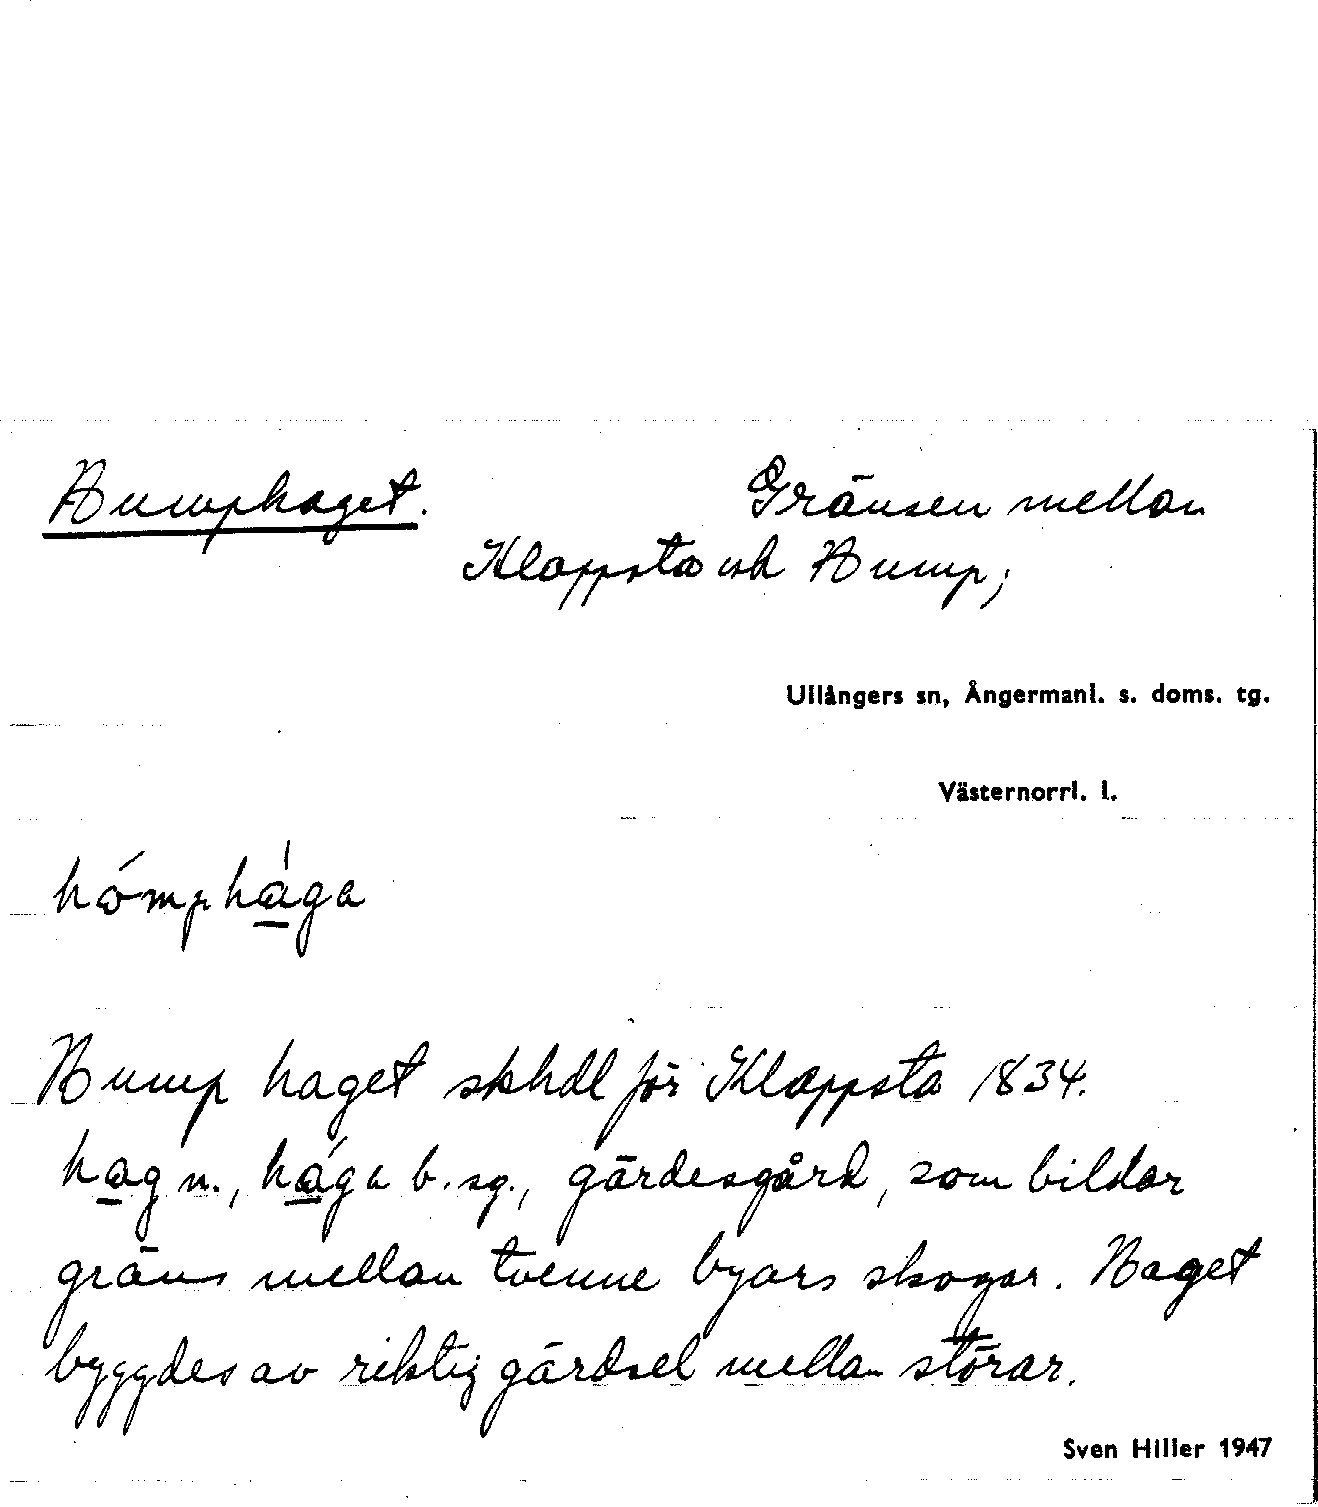 Humphaget.
Gränsen mellan
Klappsta och Hump;
Ullångers sn, Ångermanl. s. doms. tg.
Västernorrl. l.
hómphága
Hump haget skhdl för Klappsta 1834.
hag n., hága b. sg., gärdesgård, som bildar
gräns mellan tvenne byars skogar. Haget
byggdes av riktig gärdsel mellan störar.
Sven Hiller 1947